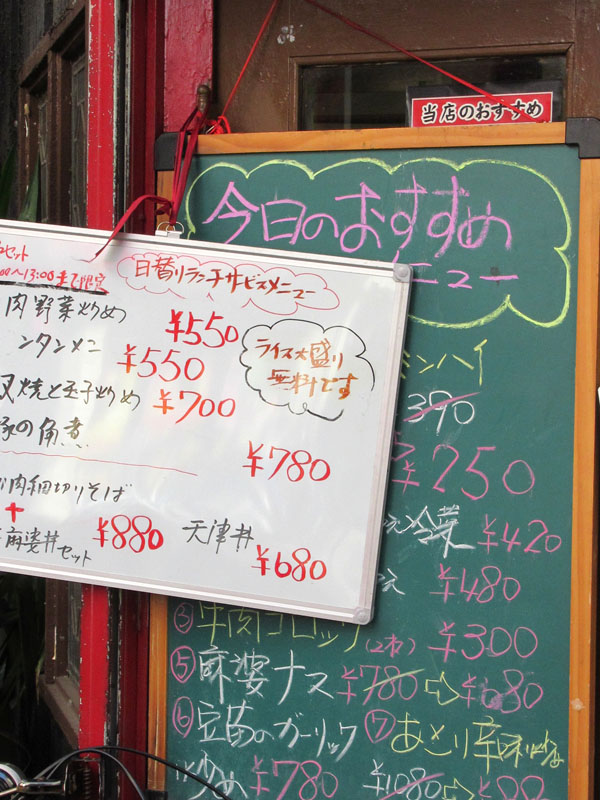 当店のおすすめ
今日のおすすめ
ニュー
ミンハイ
390
¥250
冷菜 ¥420
¥480
③ 牛肉コロッケ(2枚) ¥300
⑤ 麻婆ナス ¥780⇨¥680
⑥ 豆苗のガーリック
炒め ¥780
⑦ あさり辛味炒め
¥1080⇨
セット
00〜13:00まで限定
日替りランチサービスメニュー
肉野菜炒め ¥550
ンタンメニ ¥550
叉焼と玉子炒め ¥700
豚の角煮 ¥780
ライス大盛り
無料です
肉細切りそば
+
麻婆丼セット ¥880
天津丼 ¥680